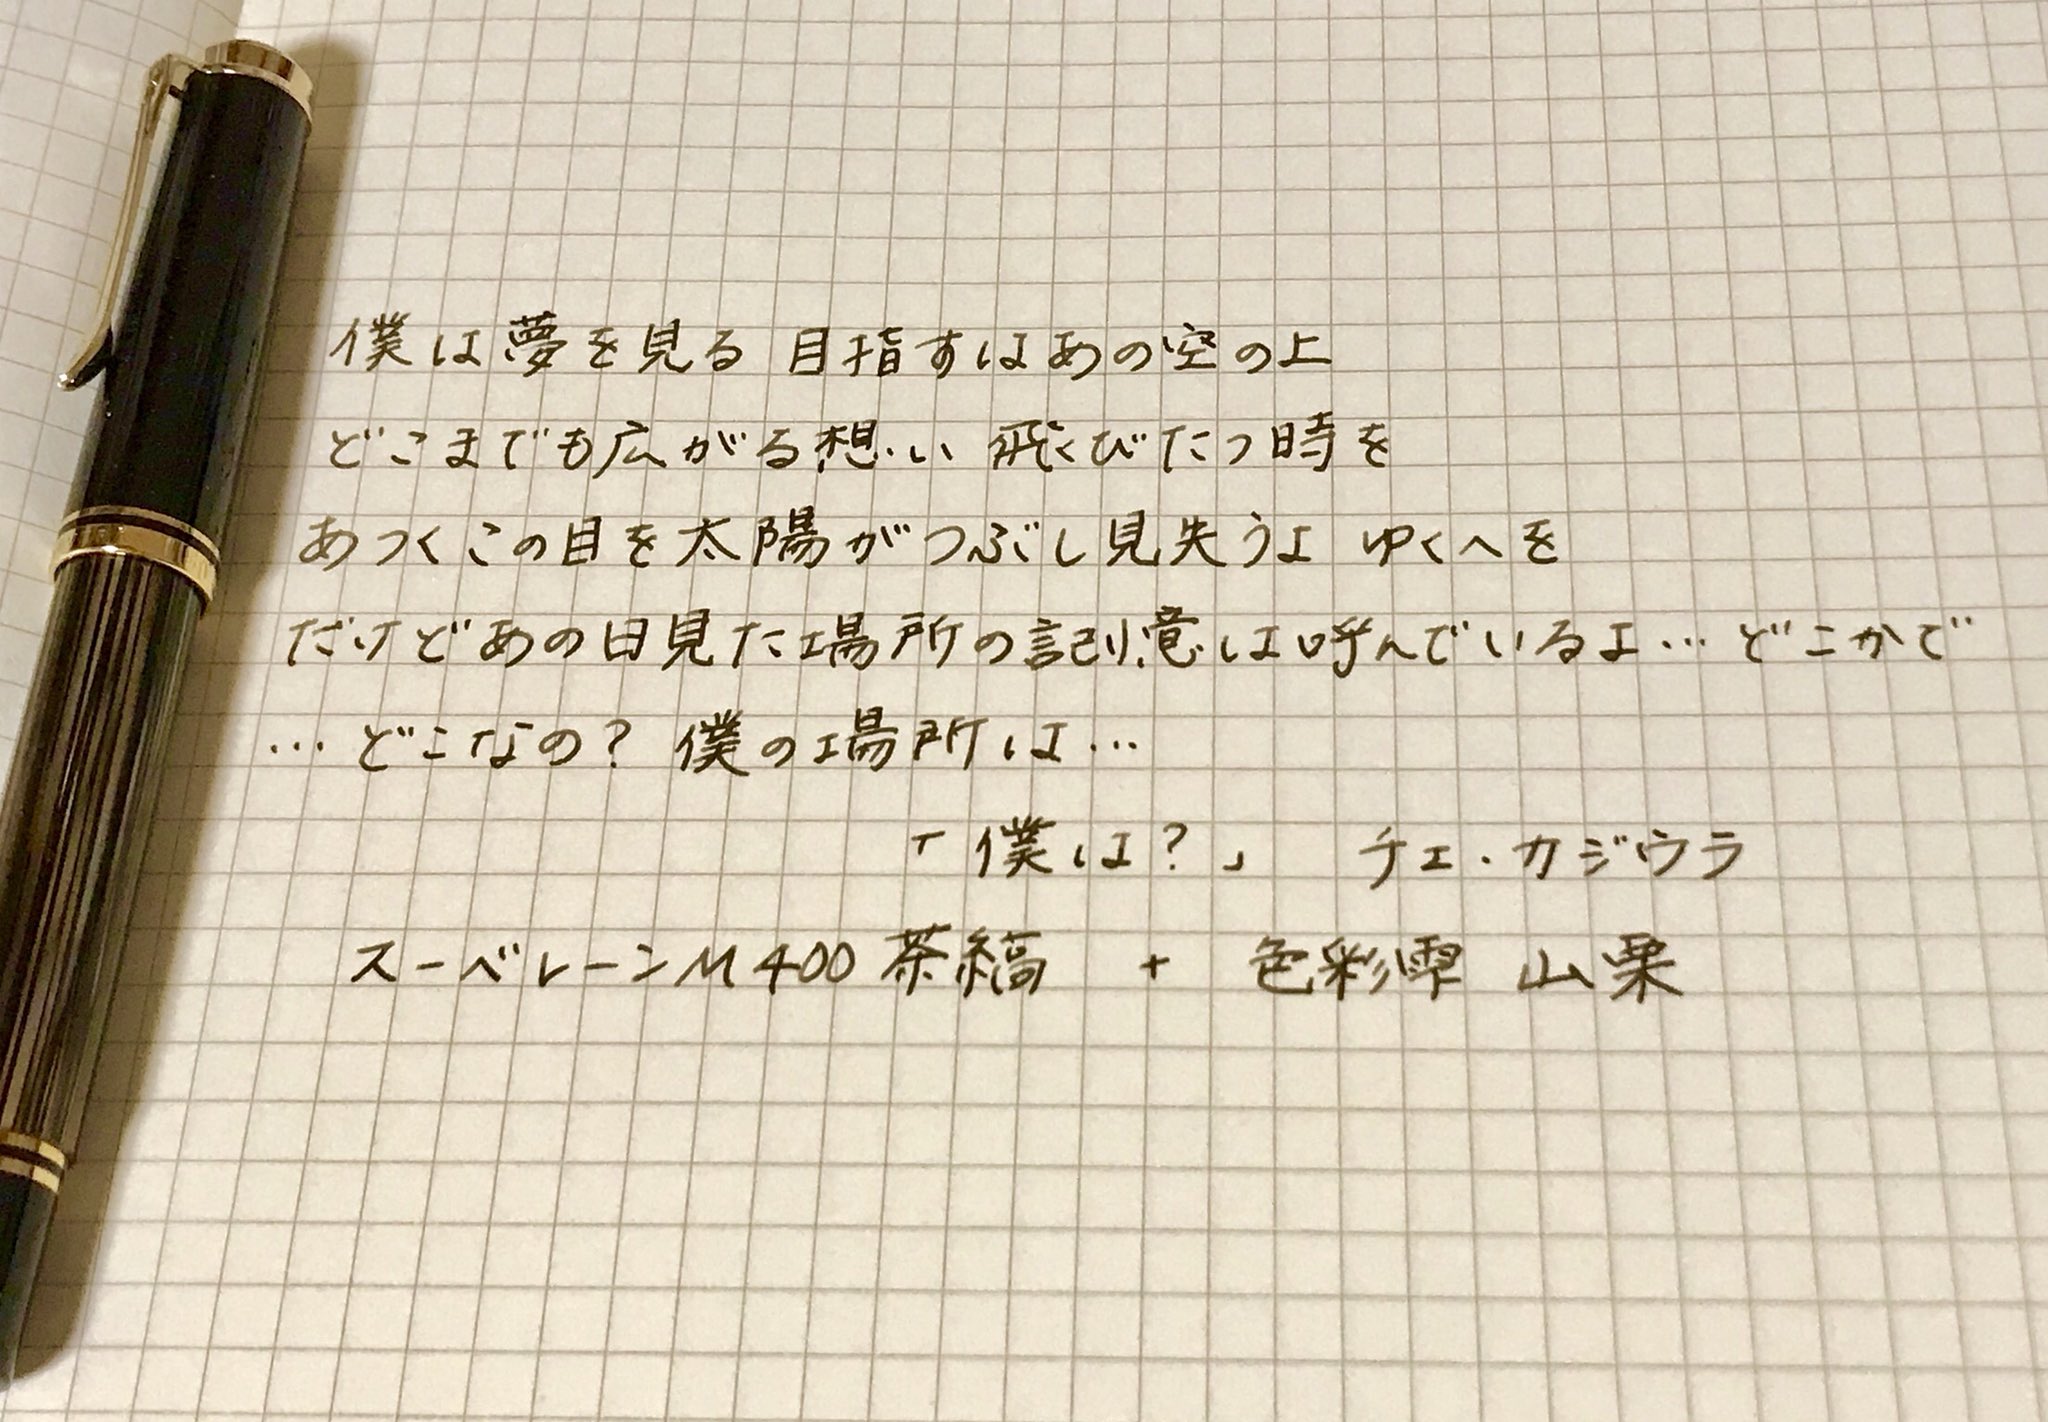 僕は夢を見る 目指すはあの空の上
どこまでも広がる想い 飛びたつ時を
あつくこの目を太陽がつぶし見失うよ ゆくへを
だけどあの日見た場所の記憶は呼んでいるよ…どこかで
…どこなの？ 僕の場所は…
「僕は？」 チェ・カジウラ
スーベレーンM400 茶縞 + 色彩雫 山栗